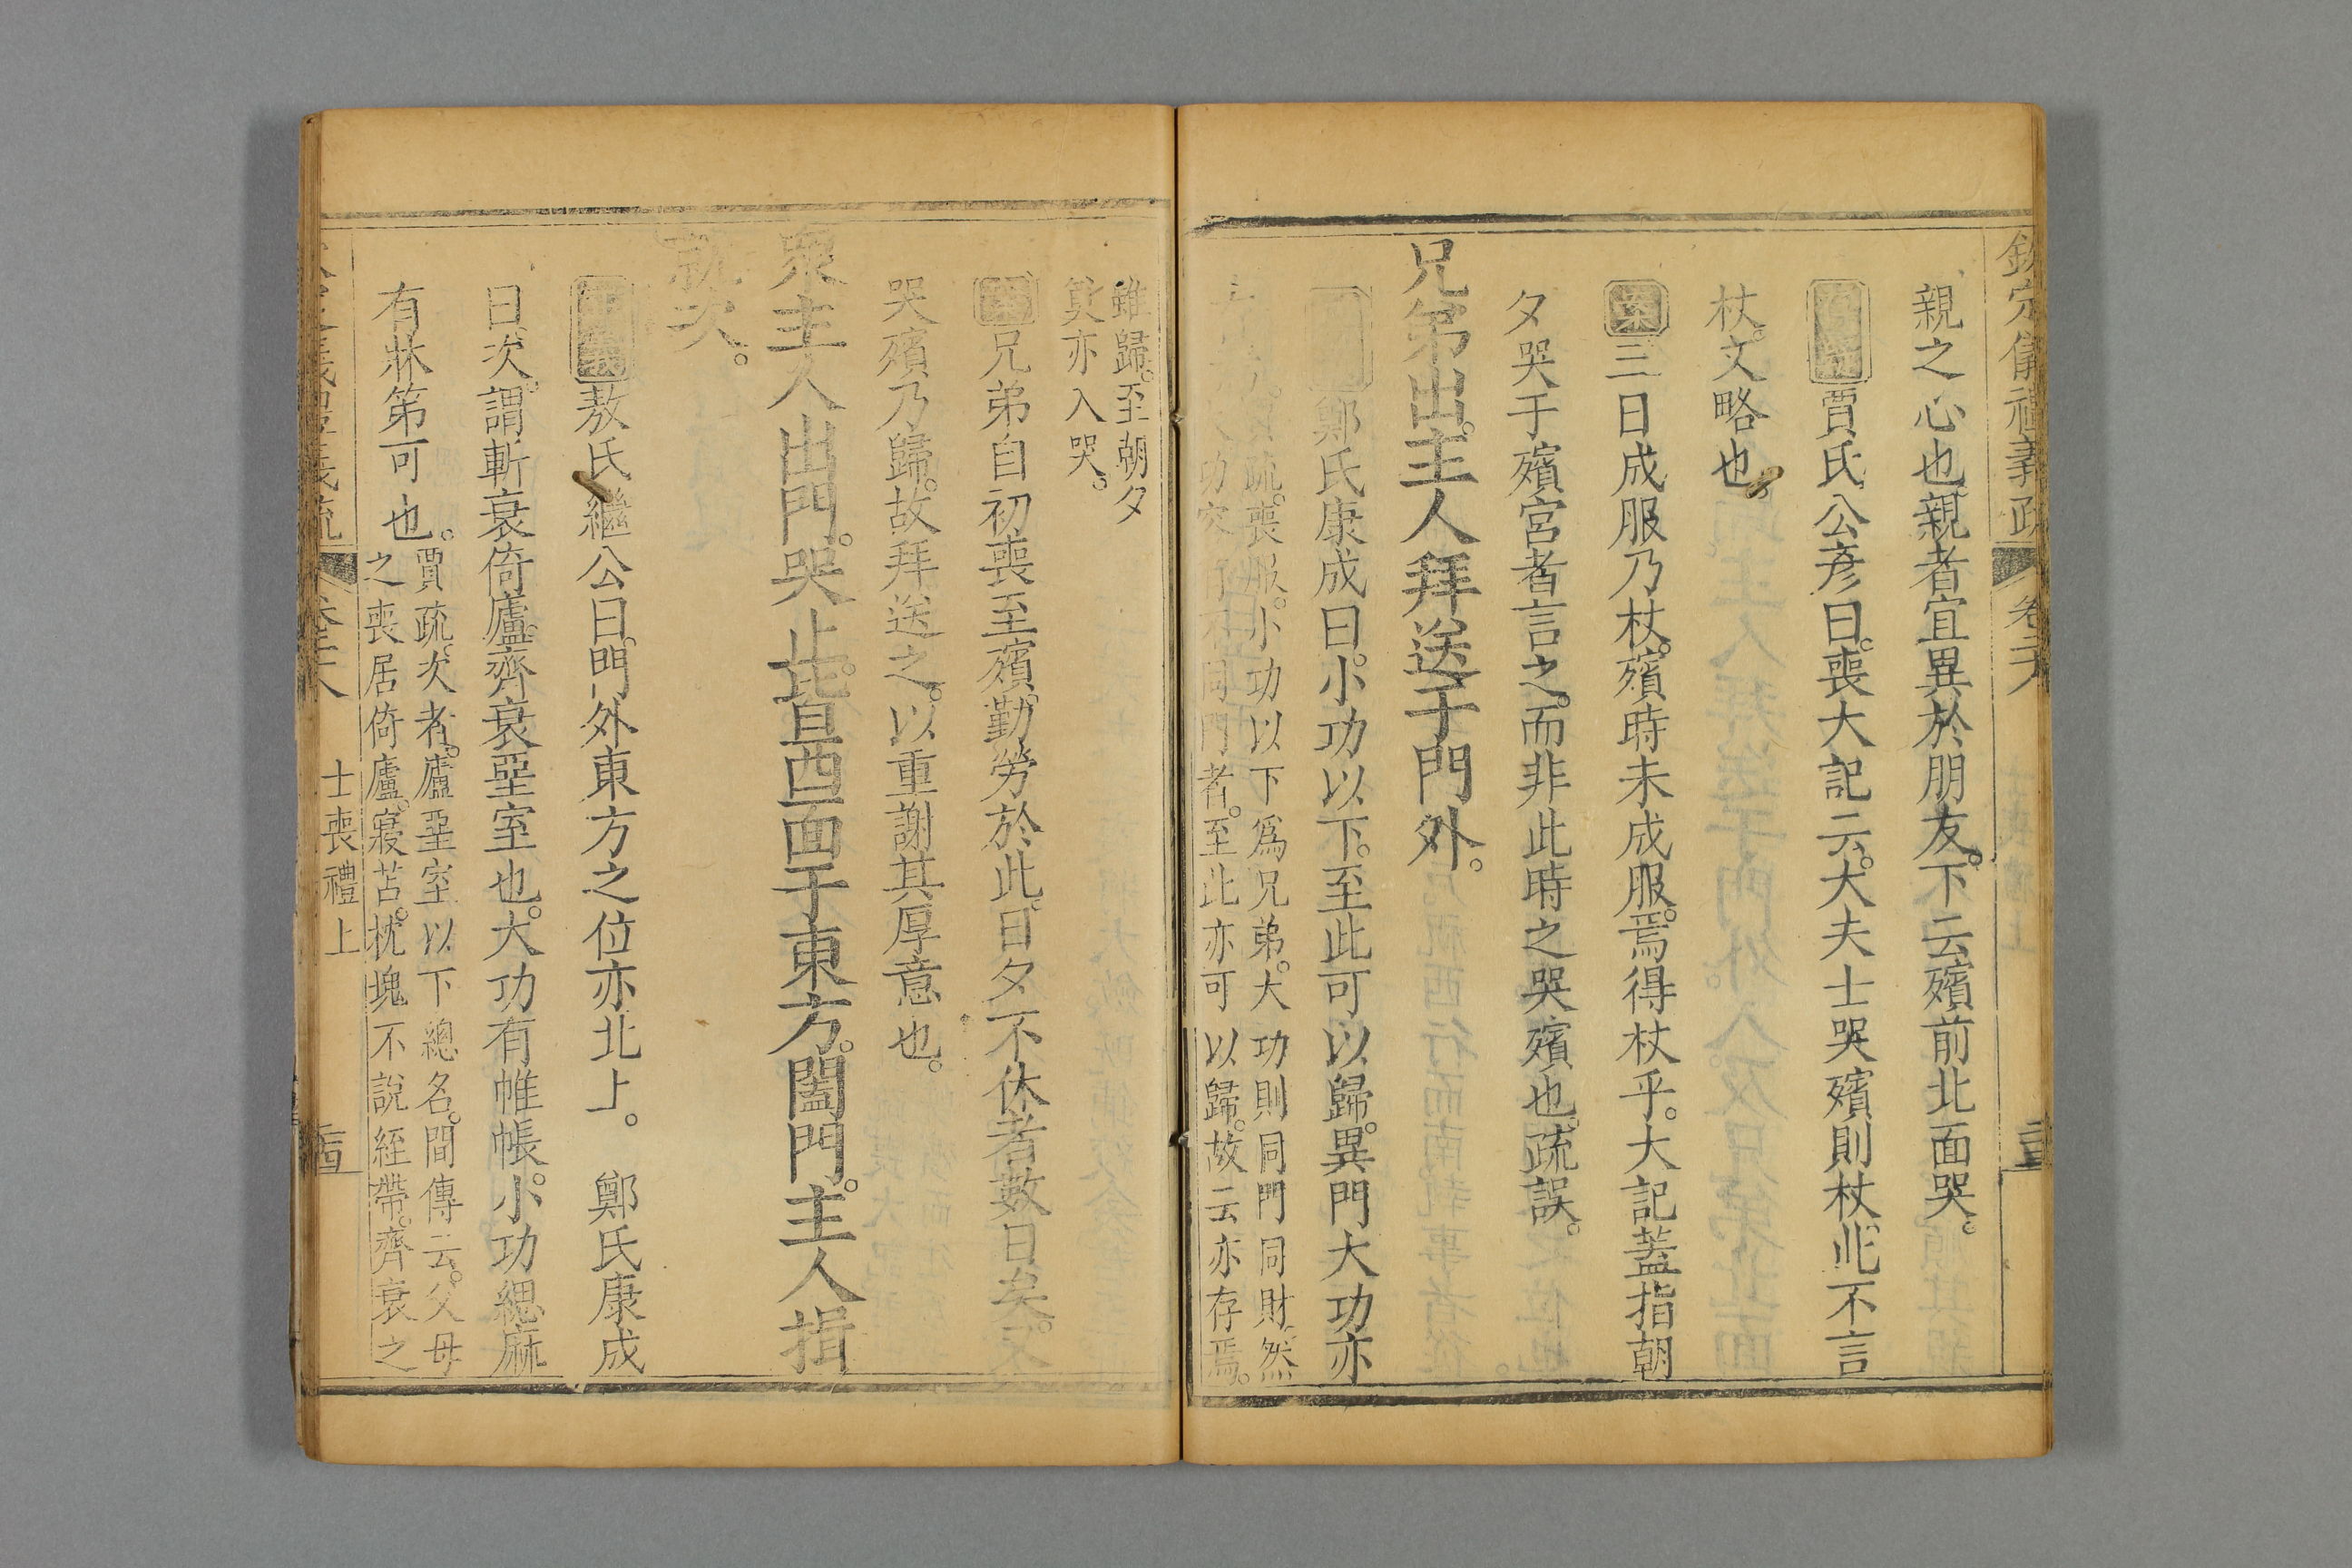 欽定儀禮義疏 卷二十八
親之心也親者宜異於朋友下云殯前北面哭
賈氏公彥曰喪大記云大夫士哭殯則杖此不言
杖文略也
案三日成服乃杖殯時未成服焉得杖乎大記蓋指朝
夕哭于殯宮者言之而非此時之哭殯也疏誤
兄弟出主人拜送于門外
鄭氏康成曰小功以下至此可以歸異門大功亦
疏喪服小功以下爲兄弟大功則同門同財然
同門者至此亦可以歸故云亦存焉
雖歸至朝夕
奠亦入哭
案兄弟自初喪至殯勤勞於此日夕不休者數日矣又
哭殯乃歸故拜送之以重謝其厚意也
衆主人出門哭止皆西面于東方闔門主人揖
就次
正義敖氏繼公曰門外東方之位亦北上 鄭氏康成
曰次謂斬衰倚廬齊衰堊室也大功有帷帳小功緦麻
有牀笫可也
賈疏次者廬堊室以下總名間傳云父母
之喪居倚廬寢苫枕塊不說絰帶齊衰之
士喪禮上